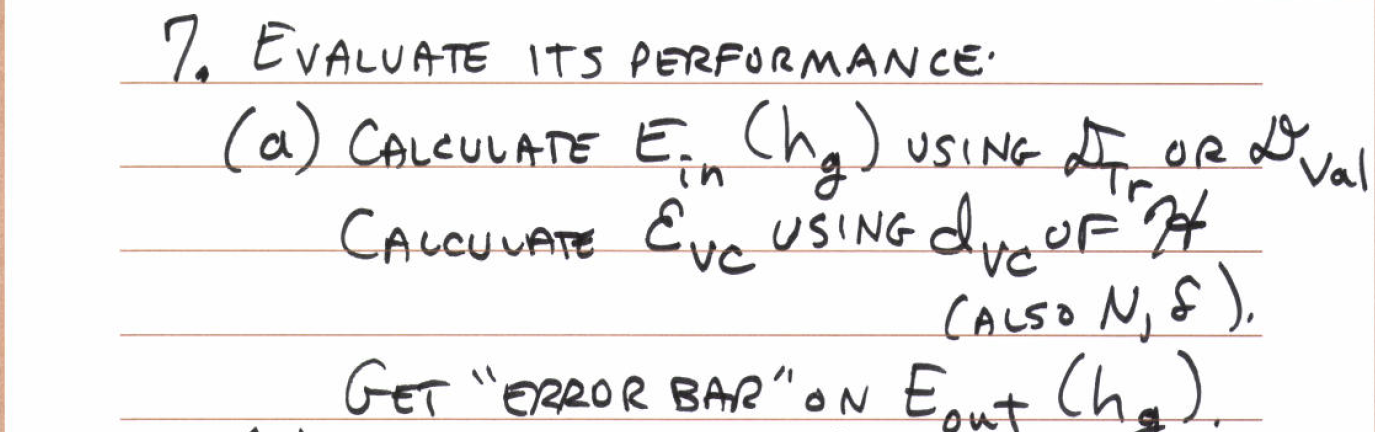 7. EVALUATE ITS PERFORMANCE.
(a) CALCULATE E_in (h_g) USING 𝒟_Tr OR 𝒟_Val
CALCULATE ℰ_VC USING d_VC OF ℋ
(ALSO N, δ).
GET "ERROR BAR" ON E_out (h_g).